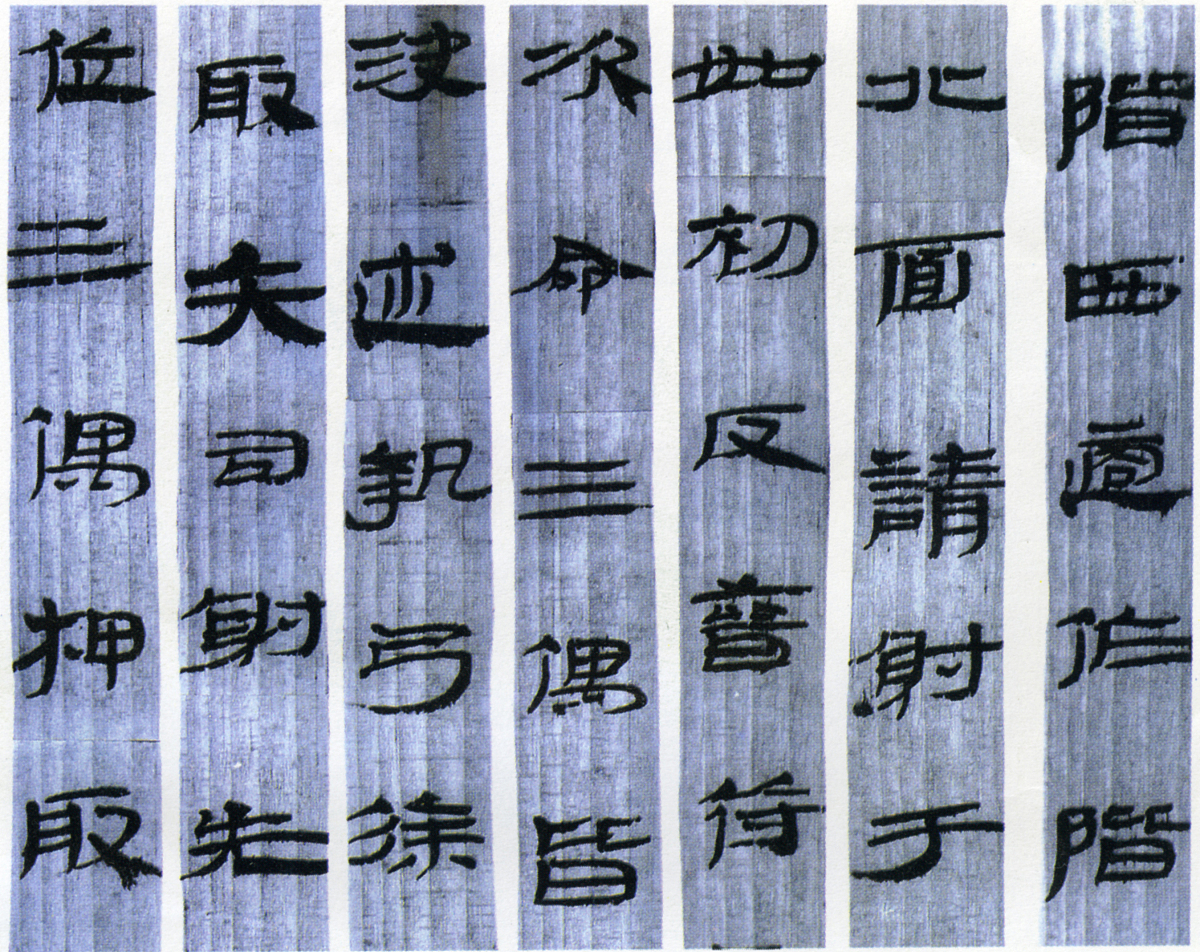 階西適作階
北面請射于
如初反晉
次命三偶皆
決述執弓徐
取矢司射先
位三偶押取